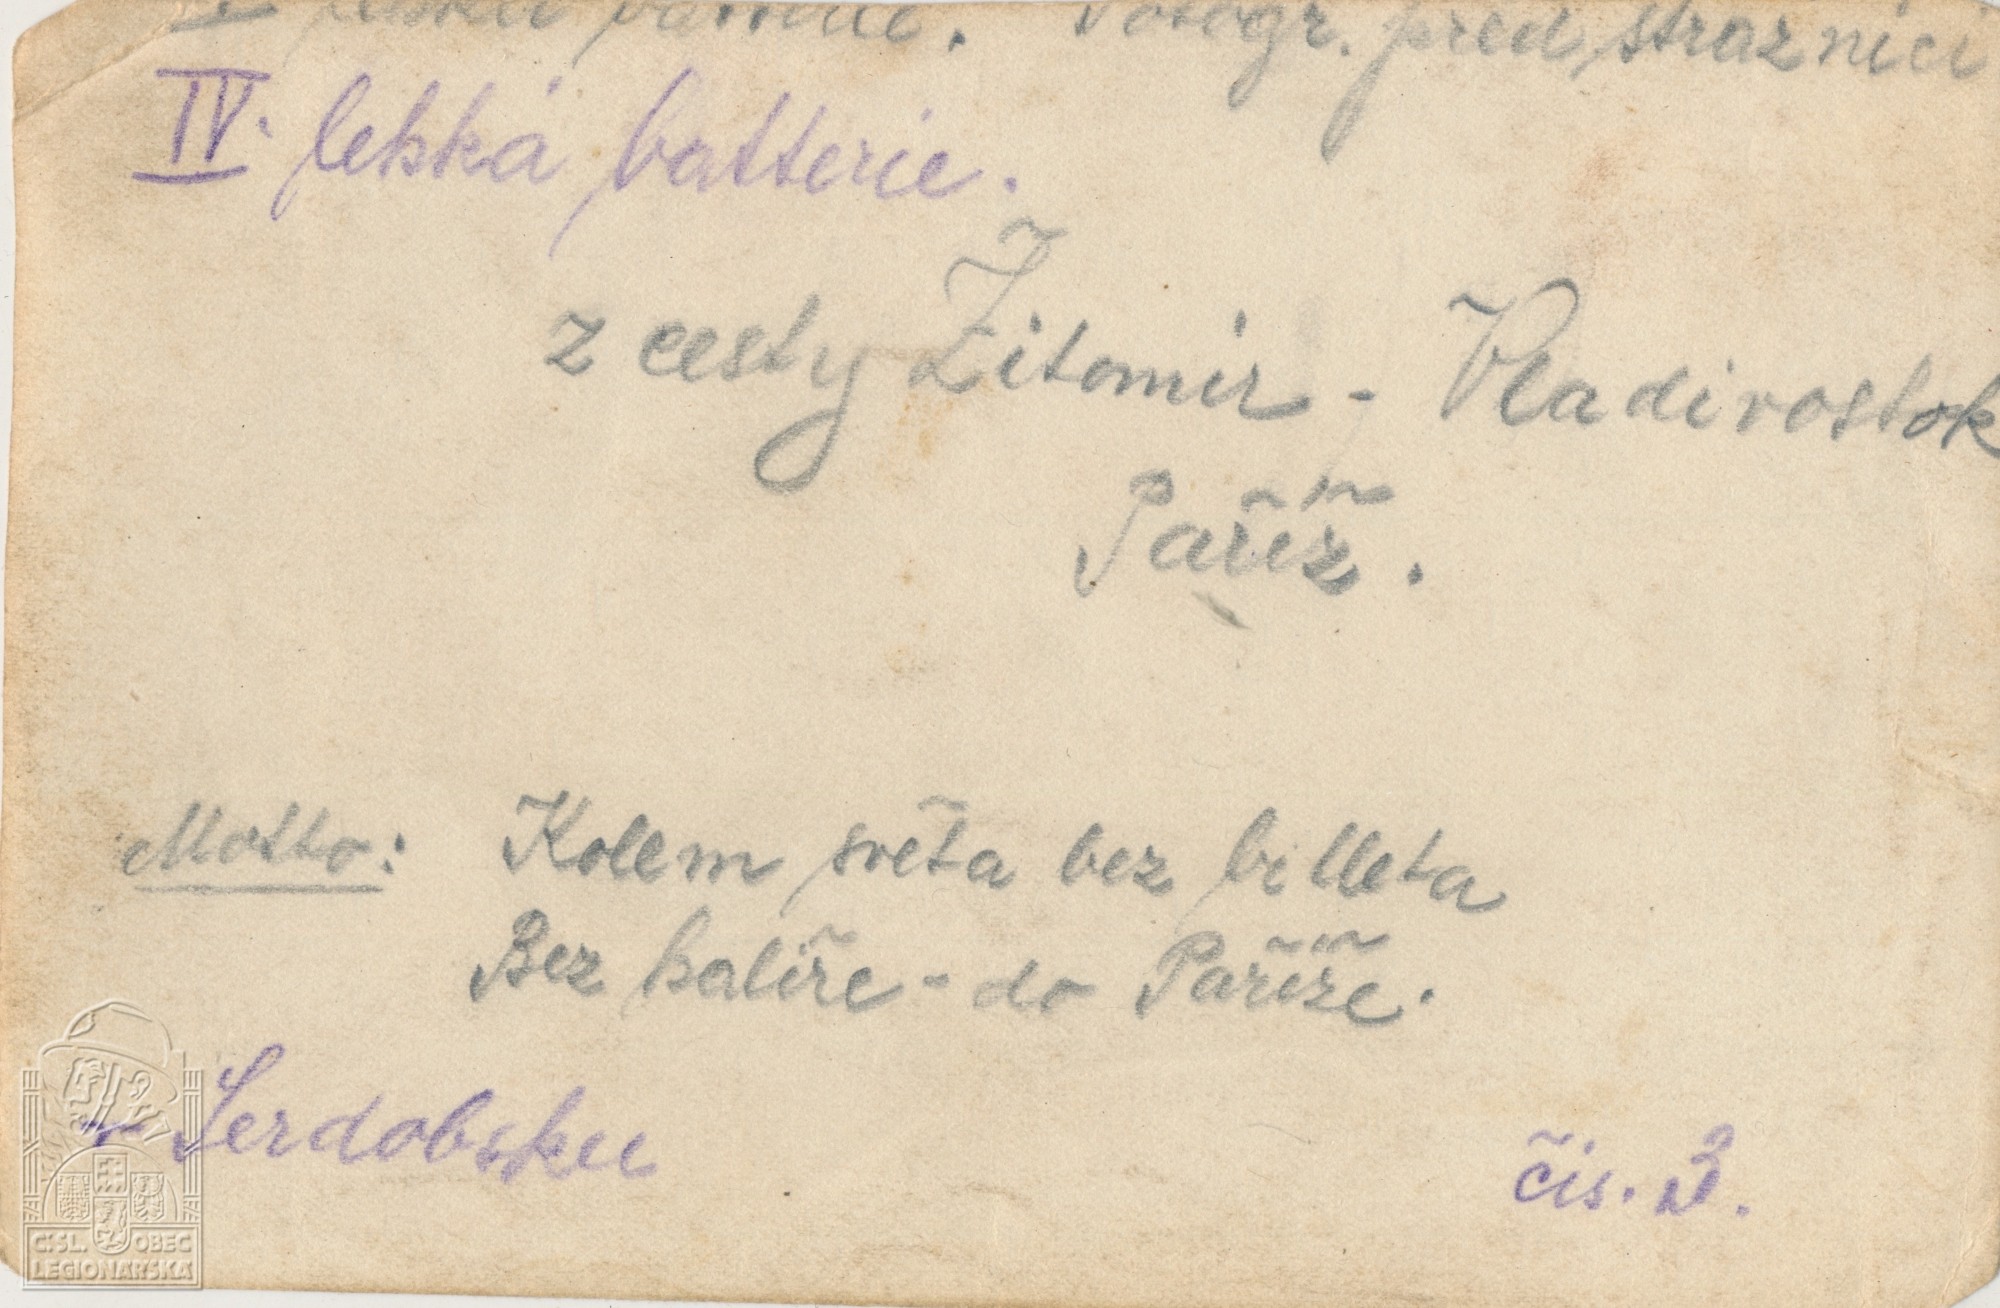 Fotogr. před strážnicí
IV. lehká batterie.
z cesty Žitomir - Vladivostok
Paříž.
Motto: Kolem světa bez billeta
Bez halíře - do Paříže.
v Serdobsku
čis. 3.
Č.SL. OBEC
LEGIONÁŘSKÁ